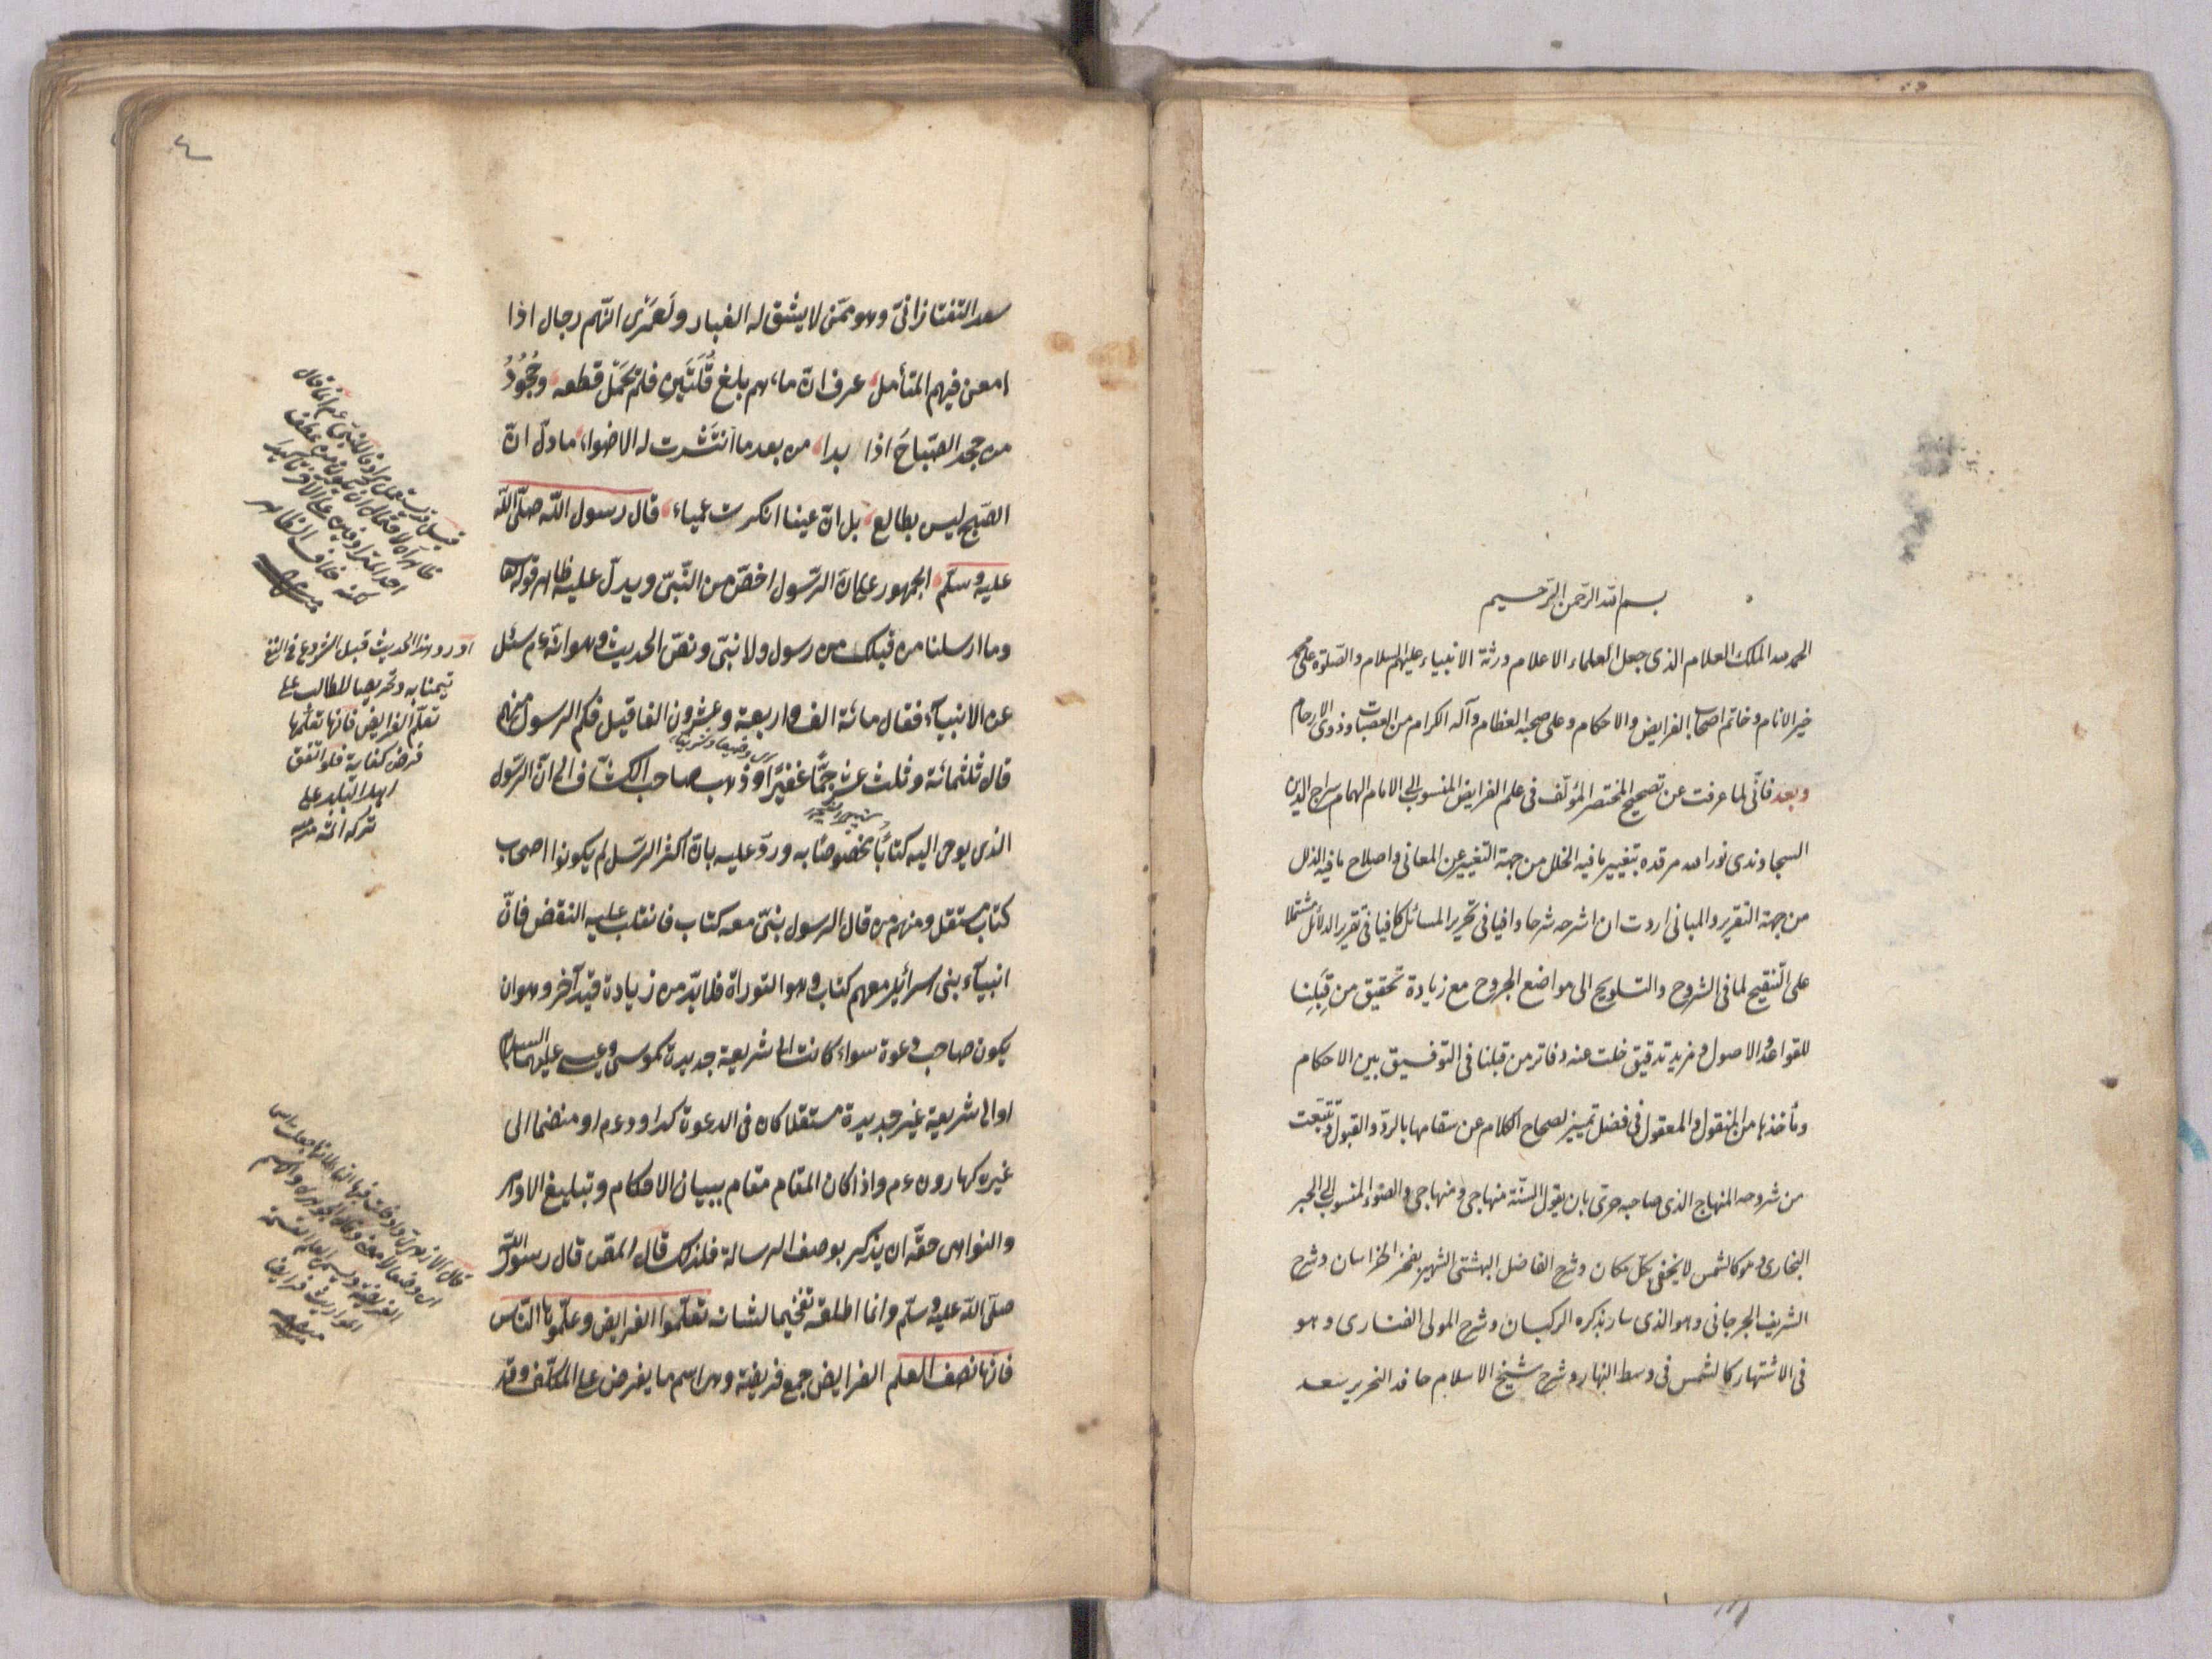 بسم الله الرحمن الرحيم
الحمد لله الملك العلام الذى جعل العلماء الاعلام ورثة الانبياء عليهم السلام والصلوة على محمد
خير الانام وخاتم اصحاب الفرايض والاحكام وعلى صحبه العظام وآله الكرام من العصبات وذوى الارحام
وبعد فانى لما عرفت عن تصحيح المختصر المؤلف فى علم الفرايض المنسوب الى الامام الهمام سراج الدين
السجاوندى نور الله مرقده بتغيير ما فيه الخلل من جهة التغيير عن المعانى واصلاح ما فيه الزلل
من جهة التقرير والمبانى اردت ان اشرحه شرحا وافيا فى تحرير المسائل كافيا فى تقرير الدلائل مشتملا
على التنقيح لما فى الشروح والتلويح الى مواضع الجروح مع زيادة تحقيق من قبلنا
للقواعد والاصول ومزيد تدقيق خلت عنه دفاتر من قبلنا فى التوفيق بين الاحكام
ومأخذها من المنقول والمعقول فى فضل تمييز لصحاح الكلام عن سقامها بالرد والقبول وتتبعت
من شروحه المنهاج الذى صاحبه حرى بان يقول السنة منهاجى ومنهاجى والضوء المنسوب الى الحبر
البخارى وهو كالشمس لا يخفى بكل مكان وشرح الفاضل البهشتى الشهير بفخر الخراسان وشرح
الشريف الجرجانى وهو الذى سار بذكره الركبان وشرح المولى الفنارى وهو
فى الاشتهار كالشمس فى وسط النهار وشرح شيخ الاسلام حافد النحرير سعد
٤
سعد التفتازانى وهو ممن لا يشق له الغبار ولعمرى انهم رجال اذا
امعن فيهم المتأمل عرف ان ماءهم بلغ قلتين فلم يحمل قطعه وجحود
من جحد الصباح اذا بدا من بعد ما انتشرت له الاضواء ما دل ان
الصبح ليس بطالع بل ان عينا انكرت عمياء قال رسول الله صلى الله
عليه وسلم الجمهور على ان الرسول اخص من النبى ويدل عليه ظاهر قوله تعالى
وما ارسلنا من قبلك من رسول ولا نبى ونص الحديث وهو انه عم سئل
عن الانبياء فقال مائة الف واربعة وعشرون الفا قيل فكم الرسول منهم
قال ثلثمائة وثلث عشر جما غفيرا وذهب صاحب الكشاف الى ان الرسول
الذى يوحى اليه كتابا مخصوصا به ورد عليه بان اكثر الرسل لم يكونوا اصحاب
كتاب مستقل ومنهم من قال الرسول نبى معه كتاب فانقلب عليه النقض فان
انبياء بنى اسرائيل معهم كتاب وهو التوراة فلا بد من زيادة قيد آخر وهو ان
يكون صاحب دعوة سواء كانت الى شريعة جديدة كموسى وعيسى عليهما السلام
او الى شريعة غير جديدة مستقلا كان فى الدعوة كداود عم او منضما الى
غيره كهارون عم واذا كان المقام مقام بيان الاحكام وتبليغ الاوامر
والنواهى حقه ان يذكر بوصف الرسالة فلذلك قال المص قال رسول الله
صلى الله عليه وسلم وانما اطلقه تفخيما لشانه تعلموا الفرايض وعلموها الناس
فانها نصف العلم الفرايض جمع فريضة وهى اسم ما يفرض على المكلف وقد
اورد هذا الحديث قبيل الشروع فى الفن
تيمنا به وتحريصا للطالب على
تعلم الفرايض فانها تعلمها
فرض كفاية فلو اتفق
اهل البلد على
تركه اثم